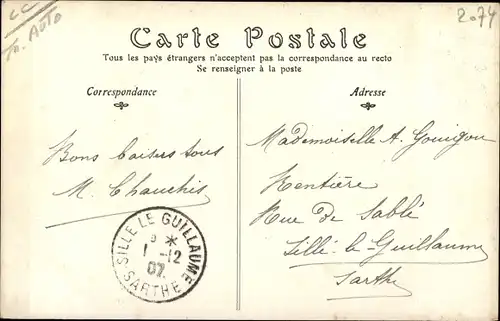 CC
Tr. AUTO
2.74
Carte Postale
Tous les pays étrangers n'acceptent pas la correspondance au recto
Se renseigner à la poste
Correspondance
Bons baisers tous
M. Chauchis
SILLE LE GUILLAUME
1 -12
07
SARTHE
Adresse
Mademoiselle A. Gouigou
Rentière
Rue de Sablé
Sillé-le-Guillaume
Sarthe